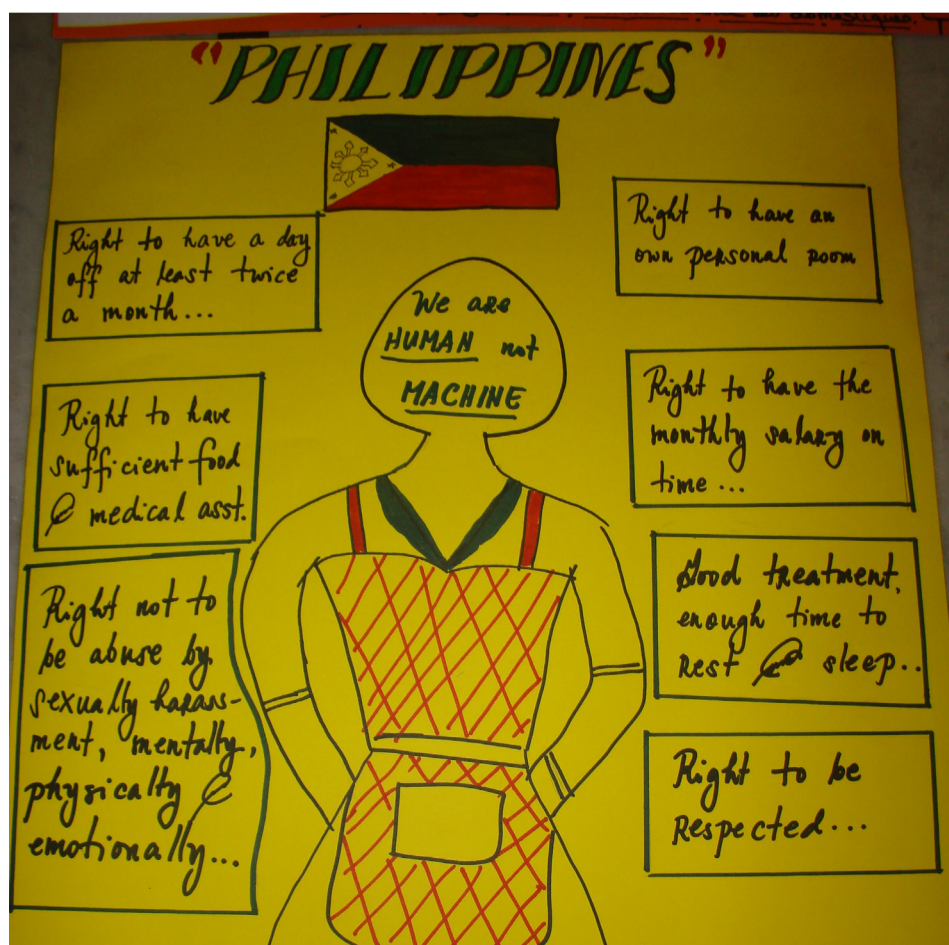 domestiques.
"PHILIPPINES"
Right to have a day
off at least twice
a month...
Right to have
sufficient food
& medical asst.
Right not to
be abuse by
sexually harass-
ment, mentally,
physically &
emotionally...
We are
HUMAN not
MACHINE
Right to have an
own personal room
Right to have the
monthly salary on
time...
Good treatment,
enough time to
Rest & sleep..
Right to be
Respected...